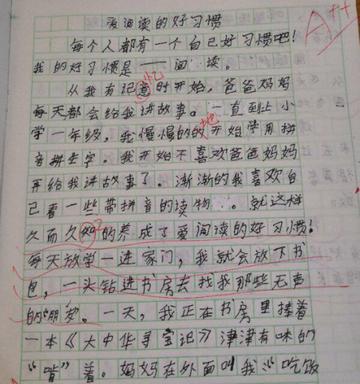 爱阅读的好习惯
每个人都有一个自己好习惯吧!
我的好习惯是——阅读。
从我有记意忆时开始,爸爸妈妈
每天都会给我讲故事。一直到上小
学一年级,我慢慢的的地开始学用拼
音拼生字。我开始不喜欢爸爸妈妈
再给我讲故事了。渐渐的我喜欢自
己看一些带拼音的读物。就这样
久而久知之的养成了爱阅读的好习惯!
每天放学一进家门,我就会放下书
包,一头钻进书房去找我那些无声
的朋友。一天,我正在书房里捧着
一本《大中华寻宝记》津津有味的
“啃”着。妈妈在外面叫我吃饭
A++